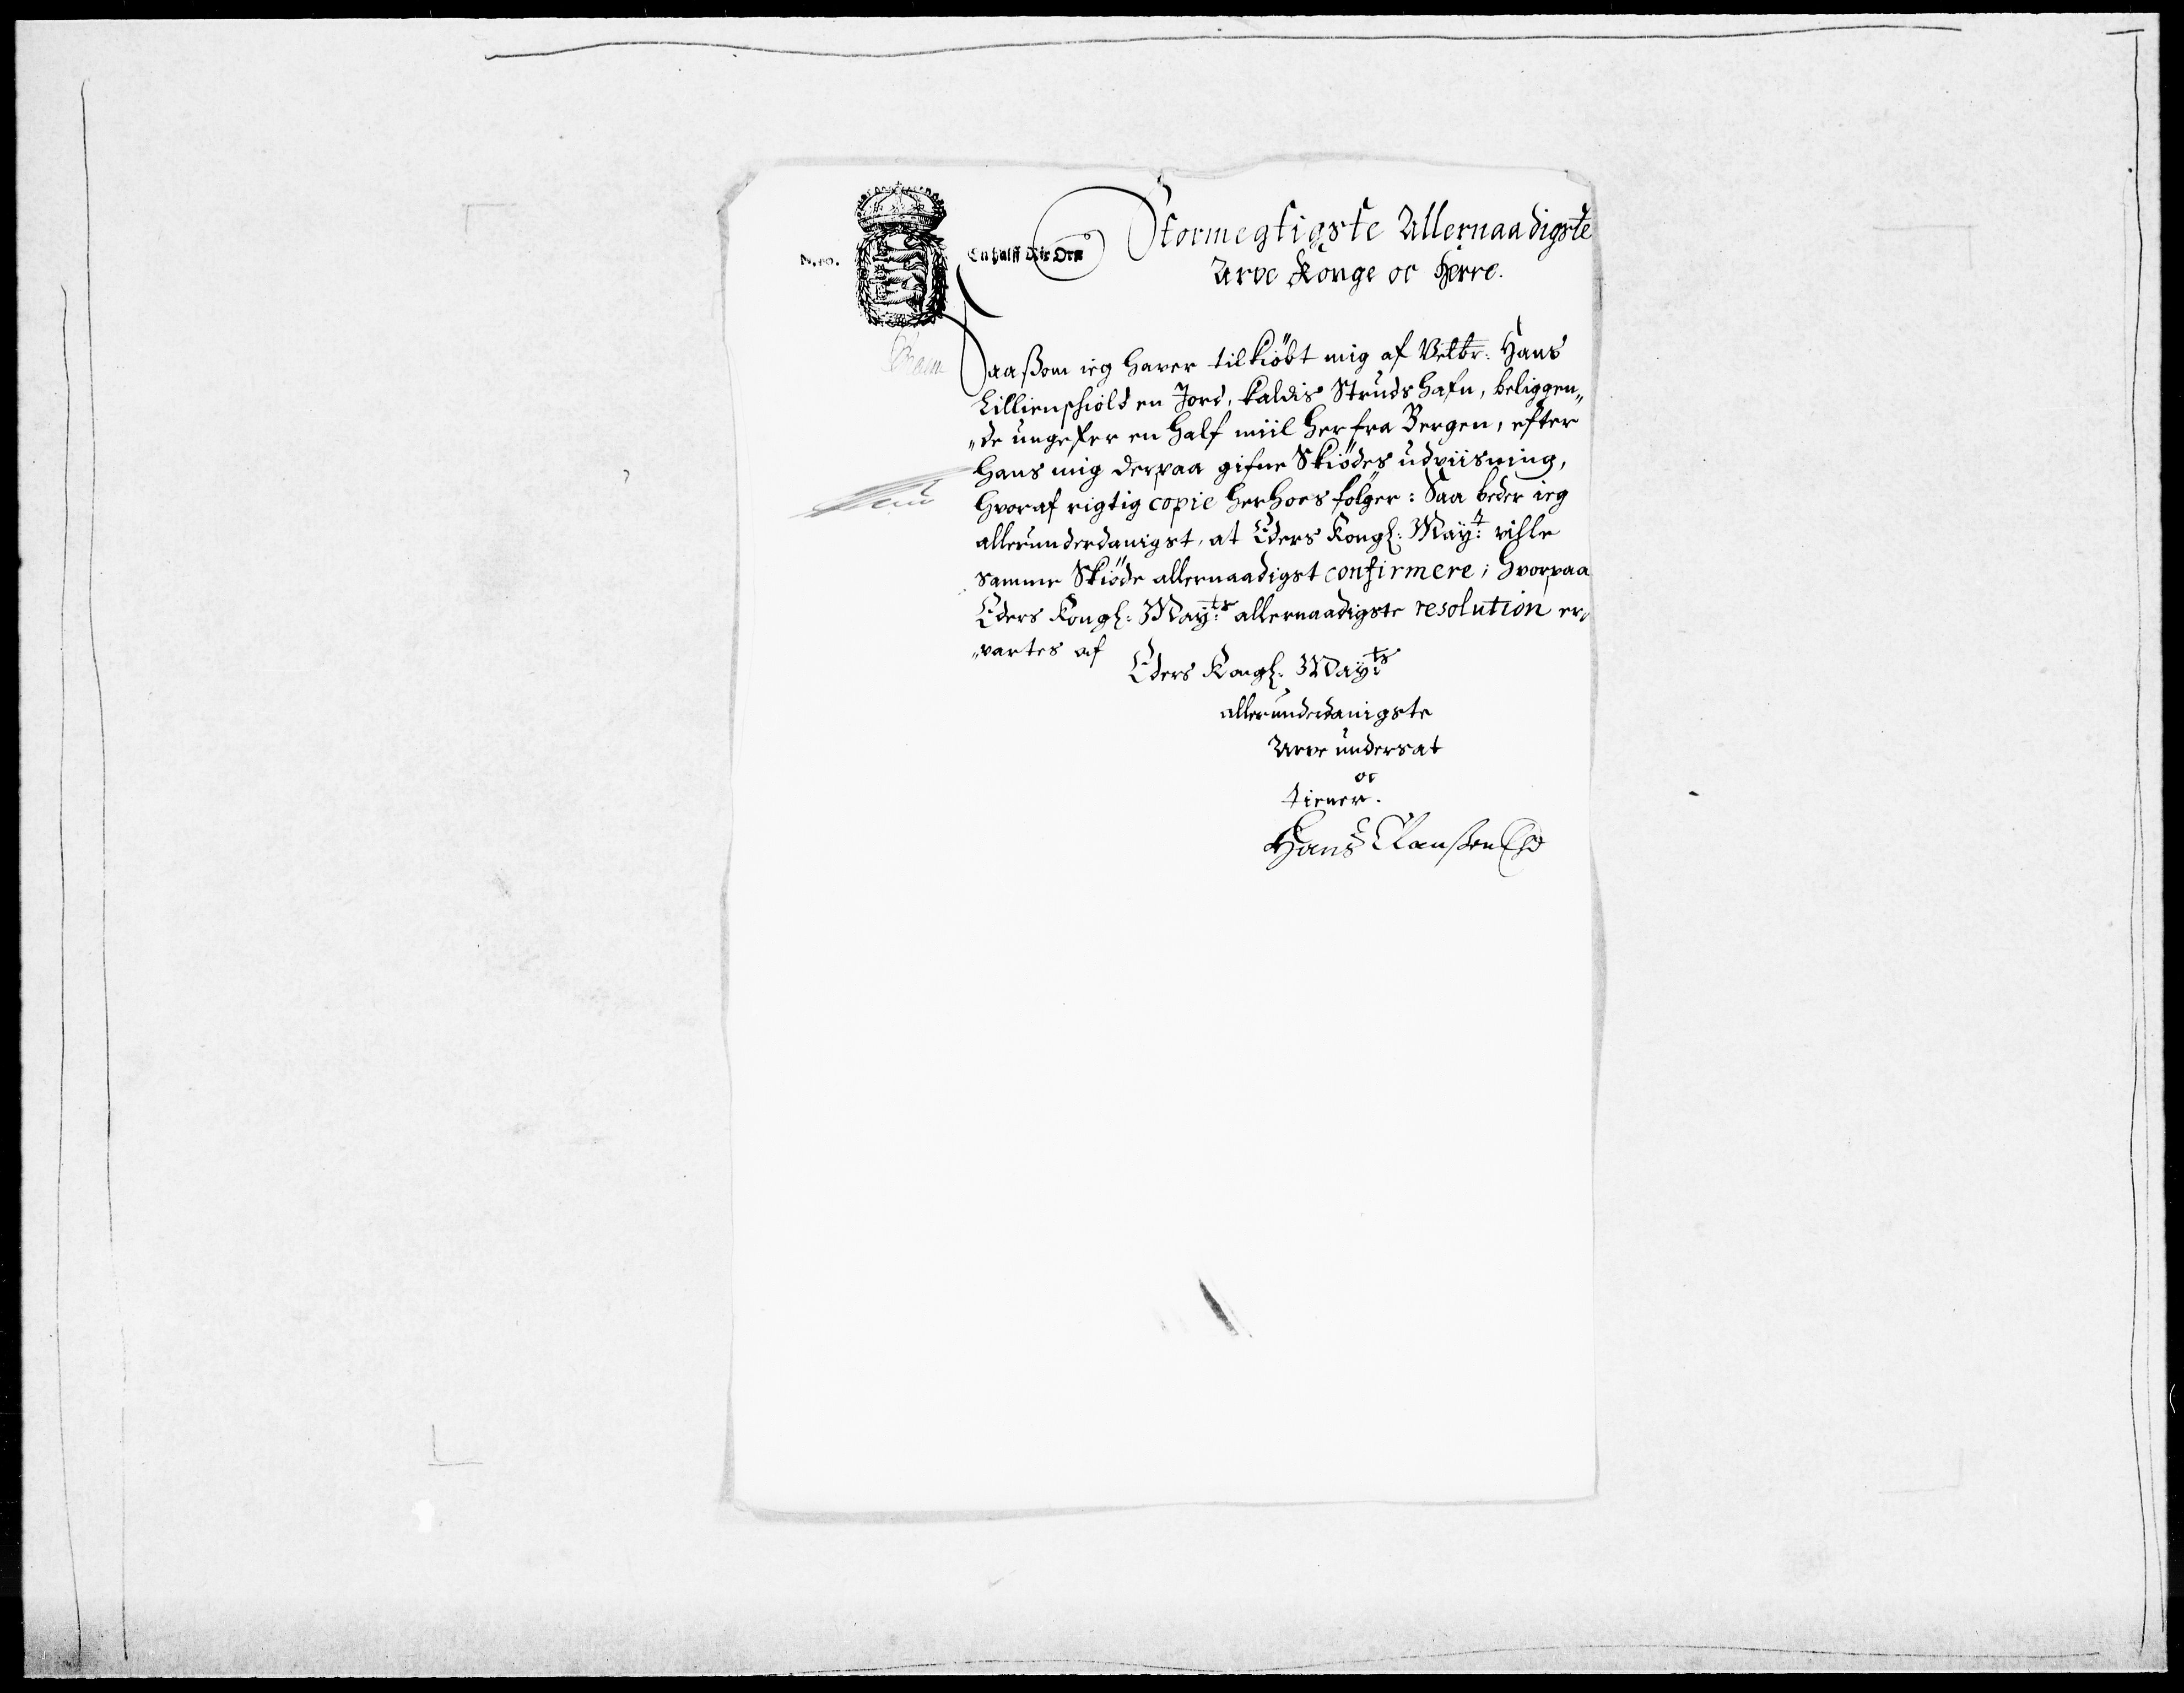 N. 10.
En halff Rix Ort
Stormegtigste Allernaadigste
Arve Konge oc Herre.
Saasom ieg hafver tilkiöbt mig af Velbr: Hans
Lillienschiold en Jord, kaldis Strudshafn, beliggen„
„de ungefer en half miil her fra Bergen, efter
hans mig derpaa gifne Skiödes udviisning,
hvoraf rigtig copie herhoes fölger: Saa beder ieg
allerunderdanigst, at Eders Kongl: Mayt: vilde
samme Skiöde allernaadigst confirmere; hvorpaa
Eders Kongl: Mayts: allernaadigste resolution er„
„vartes af
Eders Kongl: Mayts
allerunderdanigste
Arve undersat
oc
tiener.
Hans Clausen